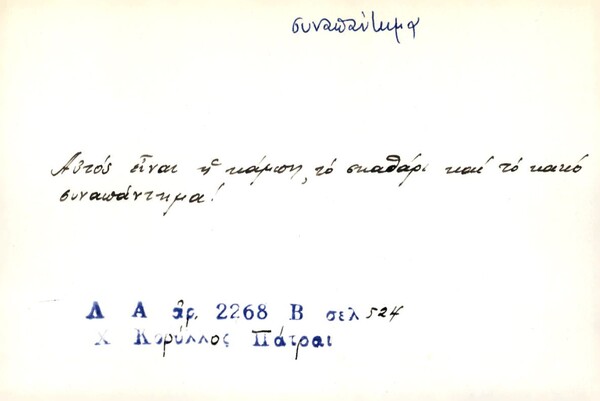 συναπάντημα
Αὐτός εἶναι ἡ κάμπη, τό σκαθάρι καί τό κακό
συναπάντημα!
Λ Α ἀρ. 2268 Β σελ 524
Χ Κορύλλος Πάτραι